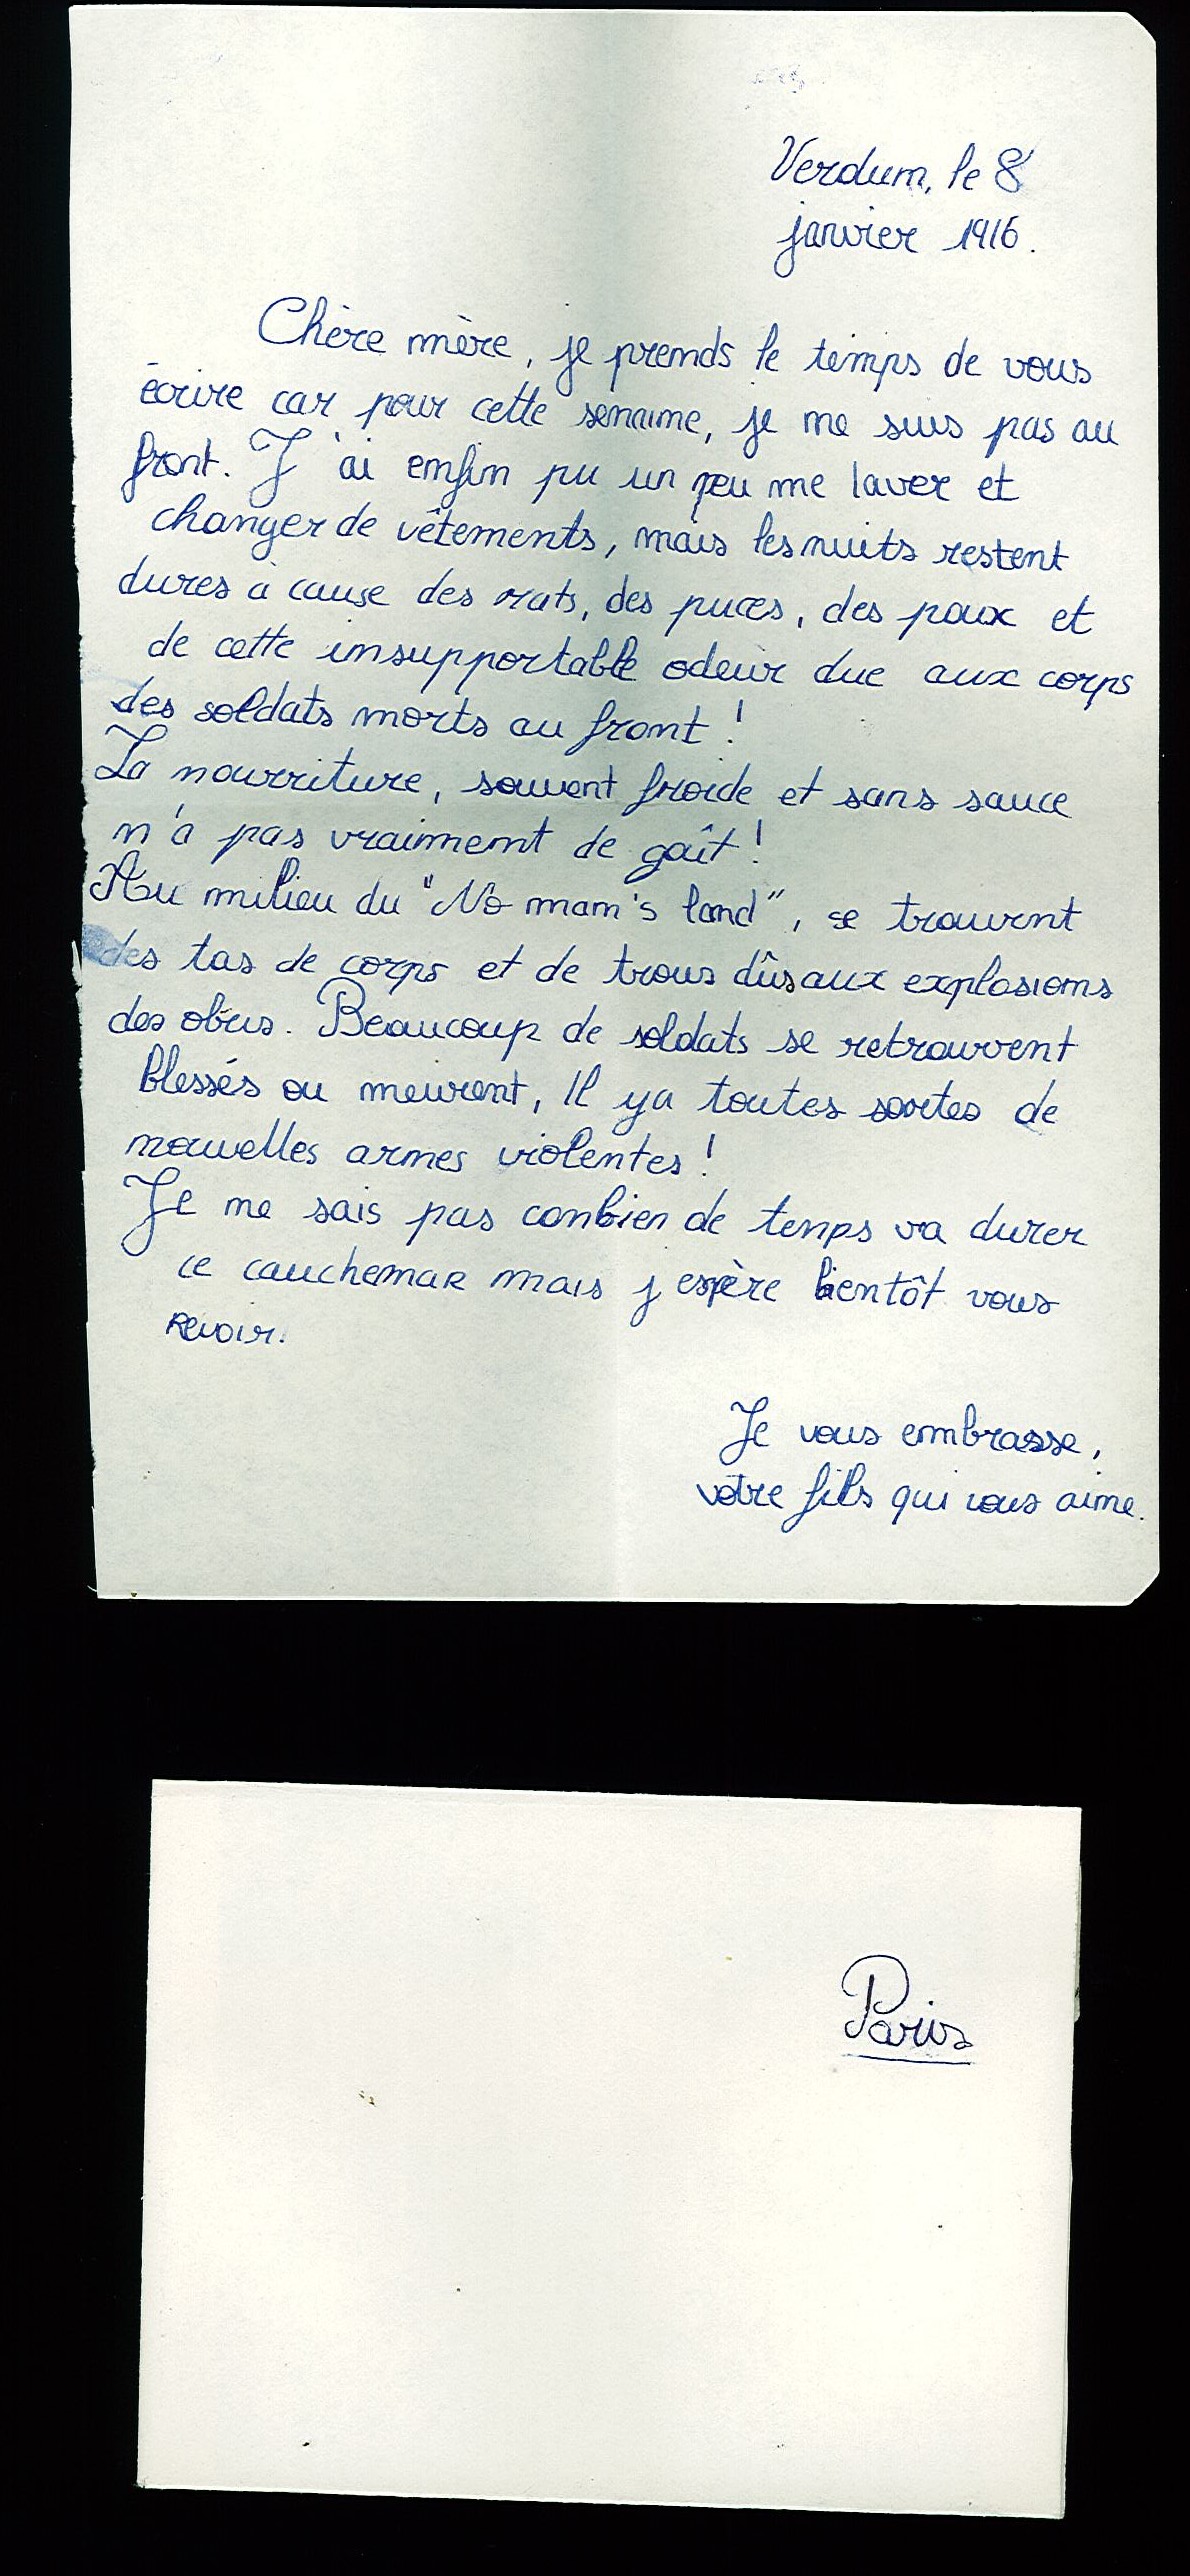 Verdun, le 8
janvier 1916.
Chère mère, je prends le temps de vous
écrire car pour cette semaine, je ne suis pas au
front. J'ai enfin pu un peu me laver et
changer de vêtements, mais les nuits restent
dures à cause des rats, des puces, des poux et
de cette insupportable odeur due aux corps
des soldats morts au front !
La nourriture, souvent froide et sans sauce
n'a pas vraiment de goût !
Au milieu du "No man's land", se trouvent
des tas de corps et de trous dûs aux explosions
des obus. Beaucoup de soldats se retrouvent
blessés ou meurent, Il y a toutes sortes de
nouvelles armes violentes !
Je ne sais pas conbien de temps va durer
ce cauchemar mais j'espère bientôt vous
revoir.
Je vous embrasse,
votre fils qui vous aime.
Paris